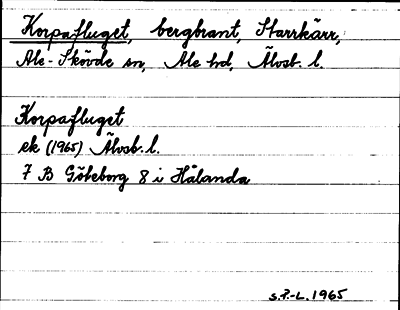 Korpafluget, bergbrant, Starrkärr,
Ale-Skövde sn, Ale hd, Älvsb. l.
Korpafluget
ek (1965) Älvsb. l.
7 B Göteborg 8 i Hålanda
S.F.-L. 1965